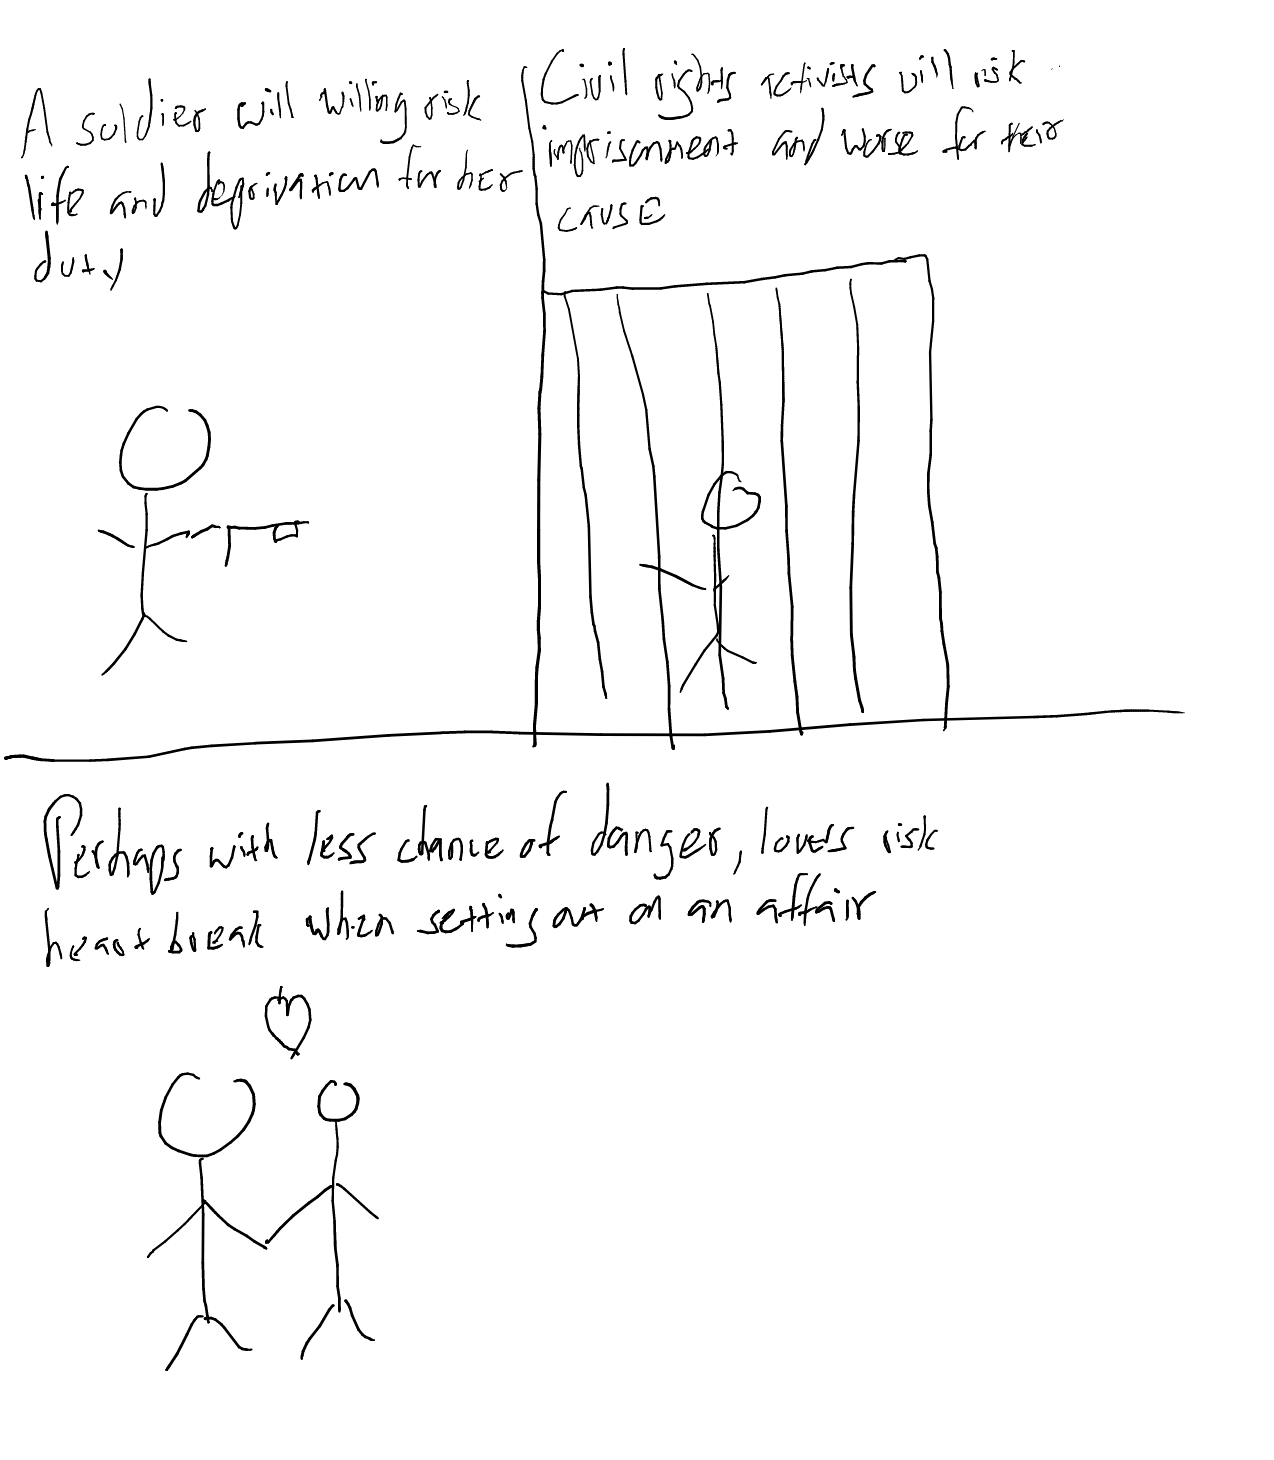 A soldier will willing risk
life and deprivation for her
duty
Civil rights activists will risk
imprisonment and worse for their
cause
Perhaps with less chance of danger, lovers risk
heart break when setting out on an affair